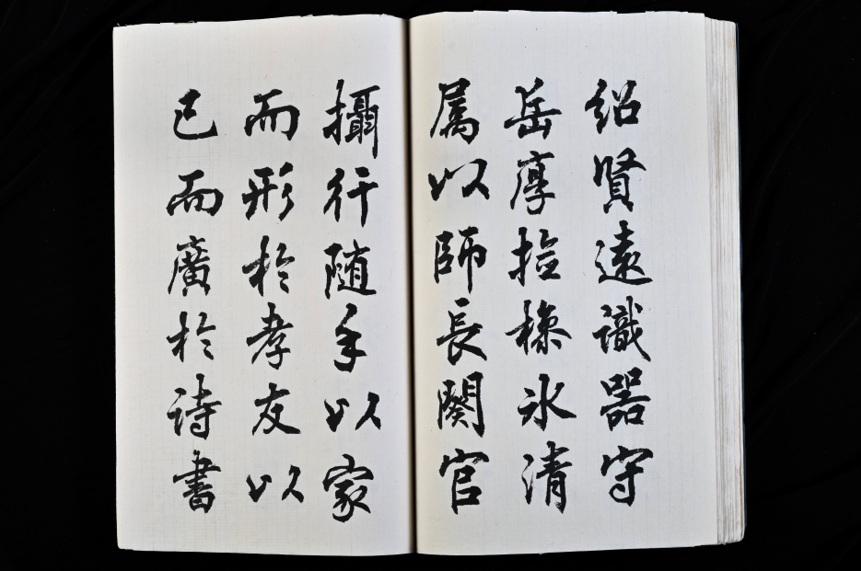 紹賢遠識器守
岳厚撿操氷清
属以師長闕官
攝行随手以家
而形於孝友以
已而廣於詩書